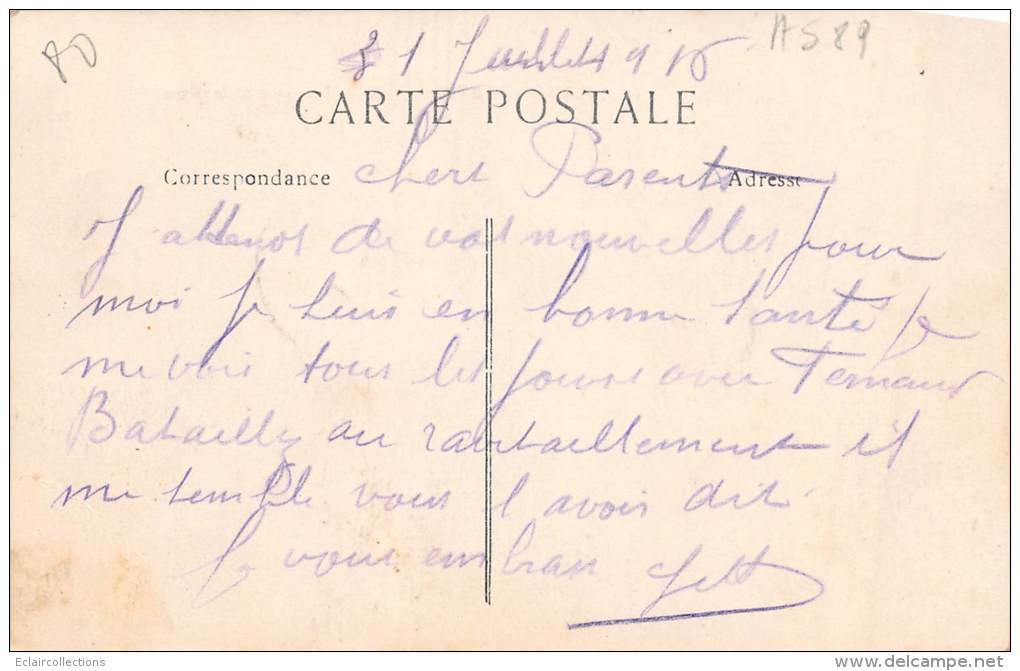 80
31 Juillet 1916
A589
CARTE POSTALE
Correspondance
Adresse
chers Parents
J attends de vos nouvelles pour
moi je suis en bonne santé je
me vois tous les jours avec Fernand
Batailly au ravitaillement il
me semble vous l avoir dit
Je vous embrass
Eclaircollections
www.delcampe.net